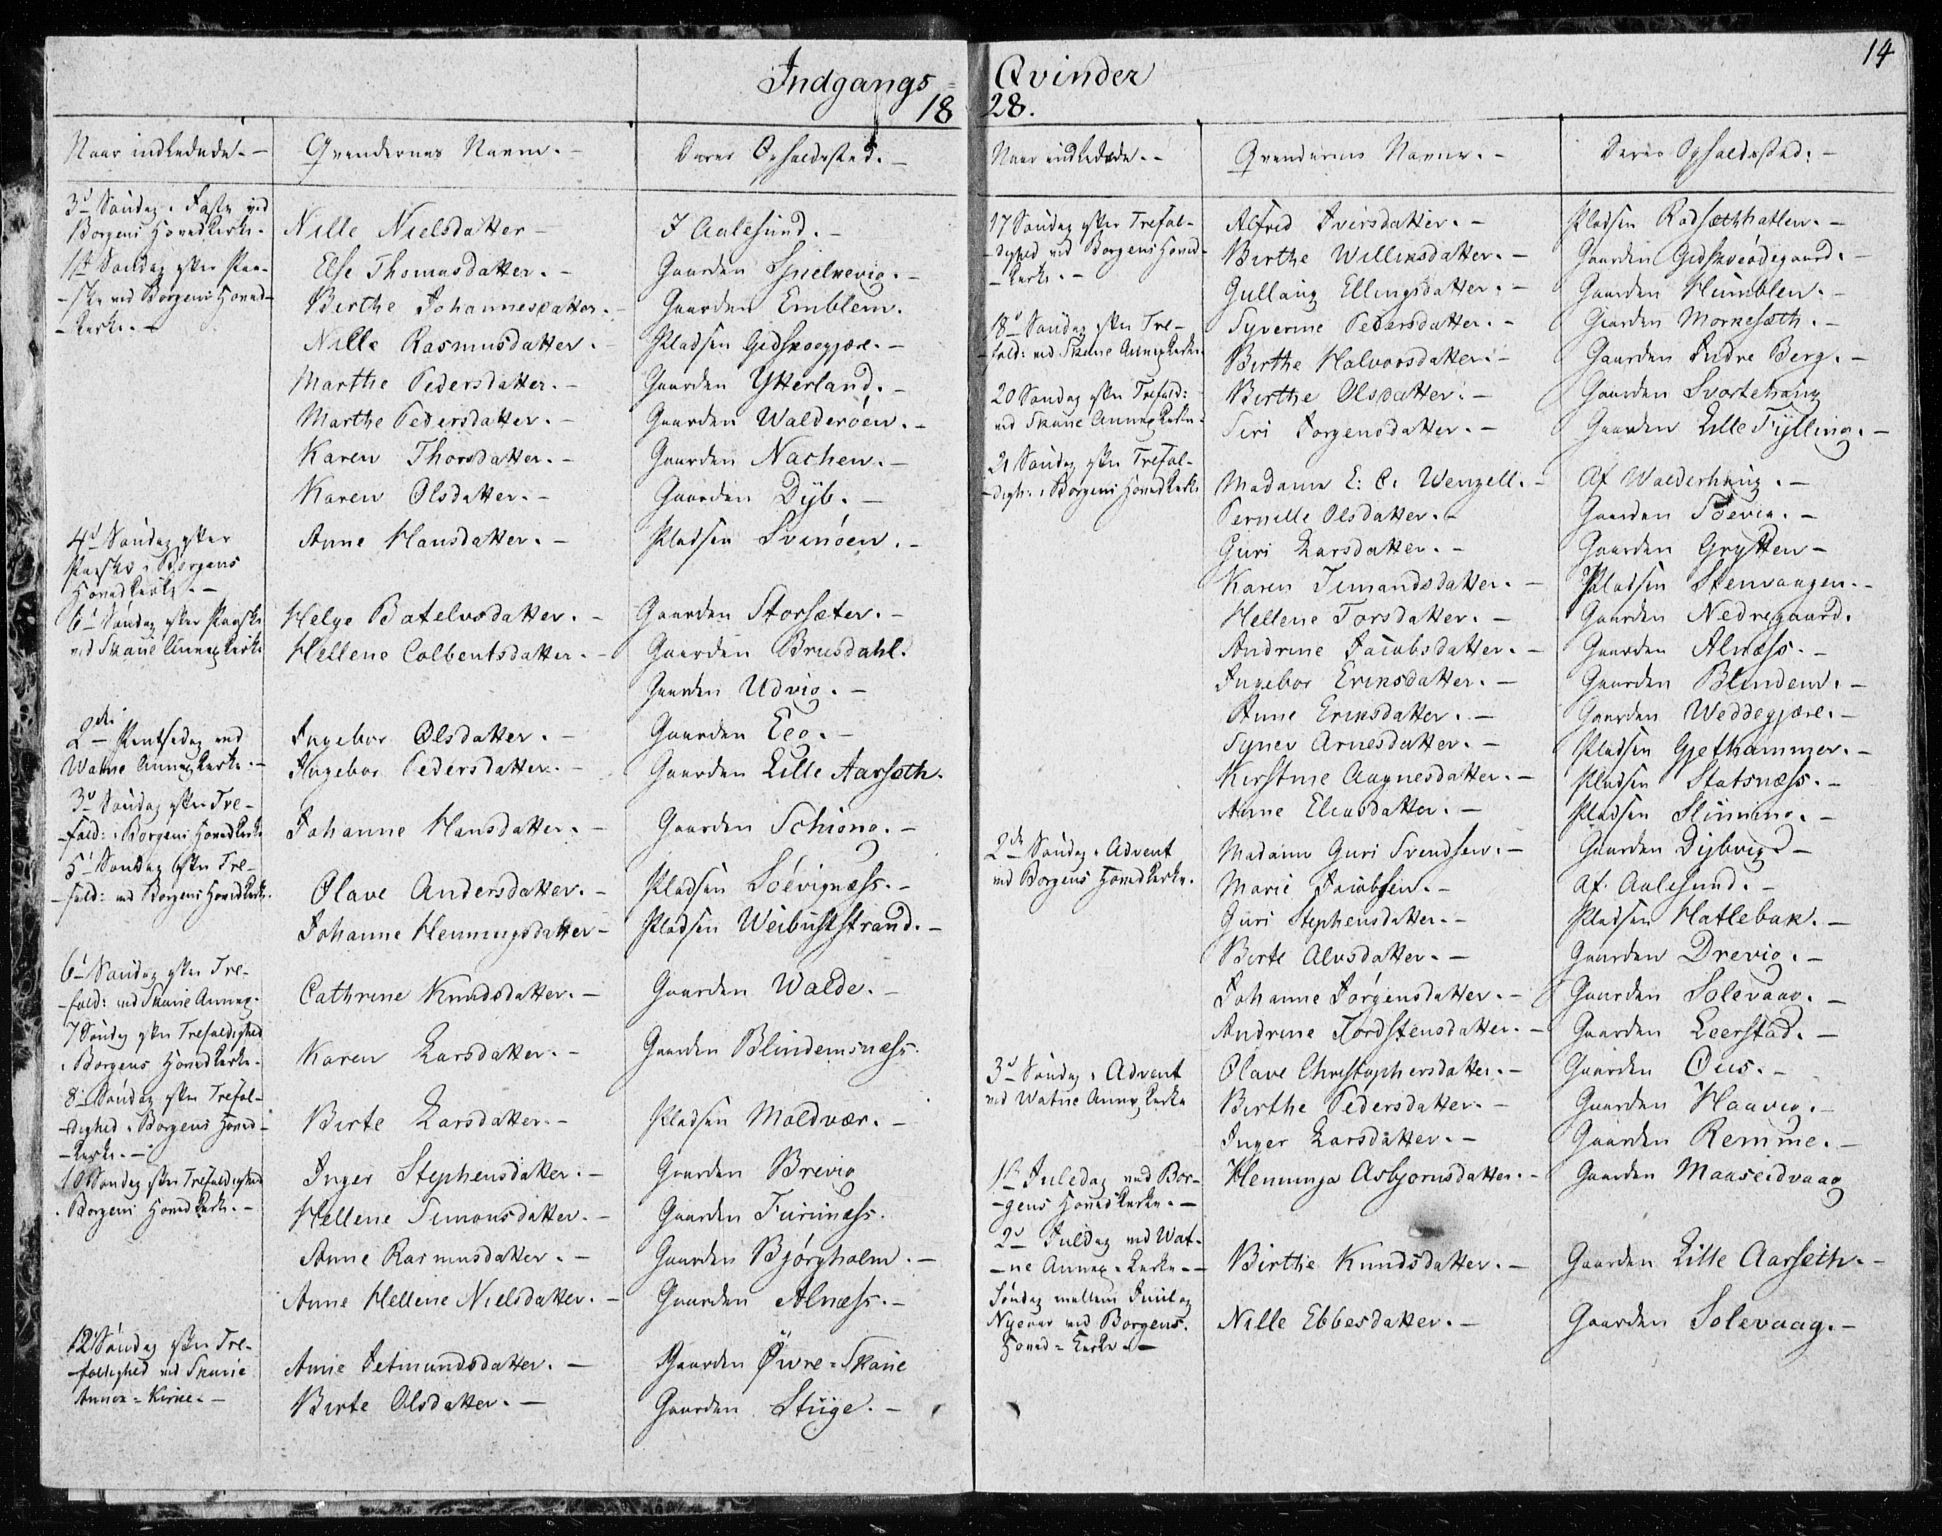 14
Indgangs = Qvinder
1828.
Naar indledede. -
Qvendernes Navne. -
Deres Opholdssted. -
3d Søndag i Faste ved
Borgens Hovedkirke. -
Nille Nielsdatter -
I Aalesund. -
1st Søndag efter Paa-
-ske ved Borgens Hoved-
-kirke. -
Else Thomasdatter. -
Gaarden Spielnevig. -
Birthe Johannesdatter. -
Gaarden Emblem.
Nille Rasmusdatter. -
Pladsen Gidskoegjære. -
Marthe Pedersdatter. -
Gaarden Ytterland. -
Marthe Pedersdatter. -
Gaarden Walderöen. -
Karen Thorsdatter. -
Gaarden Nachen. -
Karen Olsdatter. -
Gaarden Dyb. -
4d Søndag efter
Paaske i Borgens
Hovedkirke. -
Anne Hansdatter. -
Pladsen Svinöen. -
6d Søndag efter Paaske
ved Skaue Annexkirke
Helge Botelvsdatter. -
Gaarden Storsæter. -
Hellene Colbentsdatter. -
Gaarden Brusdahl.
Gaarden Udvig. -
2den Pintsedag ved
Watne Annexkirke. -
Ingebor Olsdatter. -
Gaarden Eeg. -
Ingebor Pedersdatter. -
Gaarden Lille Aarsæth.
3d Søndag efter Tre-
-fold: i Borgens Hovedkirke
Johanne Hansdatter. -
Gaarden Schiong. -
5d Søndag efter Tre-
-fold: ved Borgens Hovedkirke.
Olave Andersdatter. -
Pladsen Söevignæss. -
Johanne Henningsdatter -
Pladsen Weibustsstrand. -
6d Søndag efter Tre-
-fold: ved Skaue Annex.
Cathrine Knudsdatter. -
Gaarden Walde. -
7 Søndag efter Trefoldighed
i Borgens Hovedkirke.
Karen Larsdatter. -
Gaarden Blindemsnæss.
8d Søndag efter Trefol-
-dighed i Borgens Hoved-
-kirke. -
Birte Larsdatter. -
Pladsen Moldvær. -
10 Søndag efter Trefoldighed
i Borgens Hovedkirke. -
Inger Stephensdatter. -
Gaarden Brevig
Hellene Simonsdatter. -
Gaarden Furunæss.
Anne Rasmusdatter. -
Gaarden Bjørgholm. -
Anne Hellene Nielsdatter. -
Gaarden Alnæss. -
12 Søndag efter Tre-
-foldighed ved Skaue
Annex = Kirke. -
Anne Petmundsdatter. -
Gaarden Øvre = Skaue
Birte Olsdatter. -
Gaarden Stüge. -
Naar indledede. -
Qvendernes Navne. -
Deres Opholdssted. -
17 Søndag efter Trefol-
-dighed ved Borgens Hoved-
-kirke. -
Alfrid Iversdatter. -
Pladsen Rødsæthhatlen. -
Birthe Willumsdatter. -
Gaarden Gidskoeödegaard. -
Gullaug Ellingsdatter. -
Gaarden Humblen. -
18d Søndag efter Tre-
-fold: ved Skaue Annexkirke.
Syverine Pedersdatter. -
Gaarden Mornesæth. -
Birthe Halvorsdatter. -
Gaarden Indre Berg. -
20 Søndag efter Trefold:
ved Skaue Annexkirke. -
Birthe Olsdatter. -
Gaarden Svortehaug
Siri Jorgensdatter. -
Gaarden Lille Fylling. -
21 Søndag efter Trefol-
-digh: i Borgens Hovedkirke
Madame E: C. Wenzell. -
Af Walderhaug. -
Pernille Olsdatter. -
Gaarden Söevig. -
Guri Larsdatter. -
Gaarden Grytten -
Karen Timandsdatter. -
Pladsen Stenvaagen. -
Hellene Torsdatter. -
Gaarden Nedregaard.
Andrine Jacobsdatter. -
Gaarden Alnæss. -
Ingebor Eriksdatter. -
Gaarden Blindem. -
Anne Eriksdatter. -
Gaarden Weddegjære. -
Synev Arnesdatter. -
Pladsen Gjethammer. -
Kirstine Aagnesdatter. -
Pladsen Statsnæss. -
Anne Eliasdatter. -
Pladsen Slinning. -
2den Søndag i Advent
ved Borgens Hovedkirke.
Madame Guri Svendsen. -
Gaarden Dybvig -
Marie Jacobsen. -
Af Aalesund. -
Guri Stephensdatter. -
Pladsen Hatlebak. -
Birte Alvsdatter. -
Gaarden Drevig. -
Johanne Jørgensdatter. -
Gaarden Solevaag. -
Andrine Tordstensdatter. -
Gaarden Leerstad. -
3d Søndag i Advent
ved Watne Annexkirke
Olave Christophersdatter. -
Gaarden Öus. -
Birthe Pedersdatter. -
Gaarden Haavig. -
Inger Larsdatter. -
Gaarden Remme. -
1st Juledag ved Bor-
-gens Hovedkirke. -
Henninga Asbjornsdatter. -
Gaarden Maaseidvaag
2d Juldag ved Wat-
-ne Annex = Kirke. -
Birthe Knudsdatter. -
Gaarden Lille Aarseth. -
Søndag mellem Juul og
Nyeaar ved Borgens.
Hoved = Kirke. -
Nille Ebbesdatter. -
Gaarden Solevaag. -